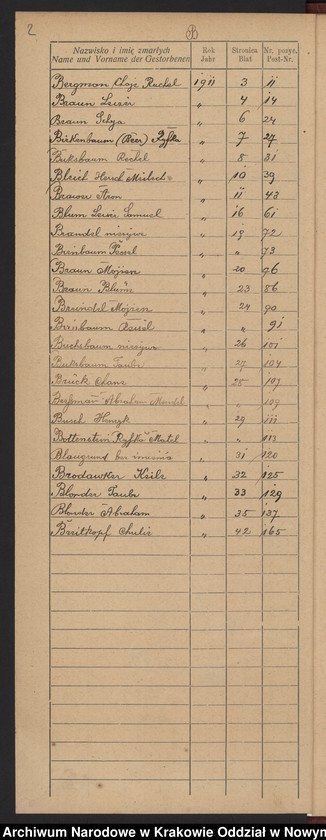 2
B
Nazwisko i imię zmarłych Rok Stronica Nr. pozyc.
Name und Vorname der Gestorbenen Jahr Blat Post-Nr.
Bergman Chaje Rachel 1911 3 11
Braun Leiser „ 4 14
Braun Schya „ 6 24
Birkenbaum (Beer) Ryfka „ 7 27
Buksbaum Rechel „ 8 31
Bleich Hersch „ 10 39
Brauer Aron „ 11 43
Blum Leiser Samuel „ 16 61
Brandel „ 19 72
Birnbaum „ „ 73
Braun Mojżesz „ 20 76
Braun Blum „ 23 86
Breindel Mojżesz „ 24 90
Birnbaum „ „ 91
Buchsbaum „ 26 101
Buksbaum Taube „ 27 104
Brück Chana „ 25 107
Bergman Abraham Mendel „ 109
Busch Henryk „ 29 111
Bottenstein Ryfka Matel „ „ 113
Blaugrund bez imienia „ 31 120
Brodawker „ 32 125
Blonder Taube „ 33 129
Blonder Abraham „ 35 137
Breitkopf „ 42 165
Archiwum Narodowe w Krakowie Oddział w Nowym